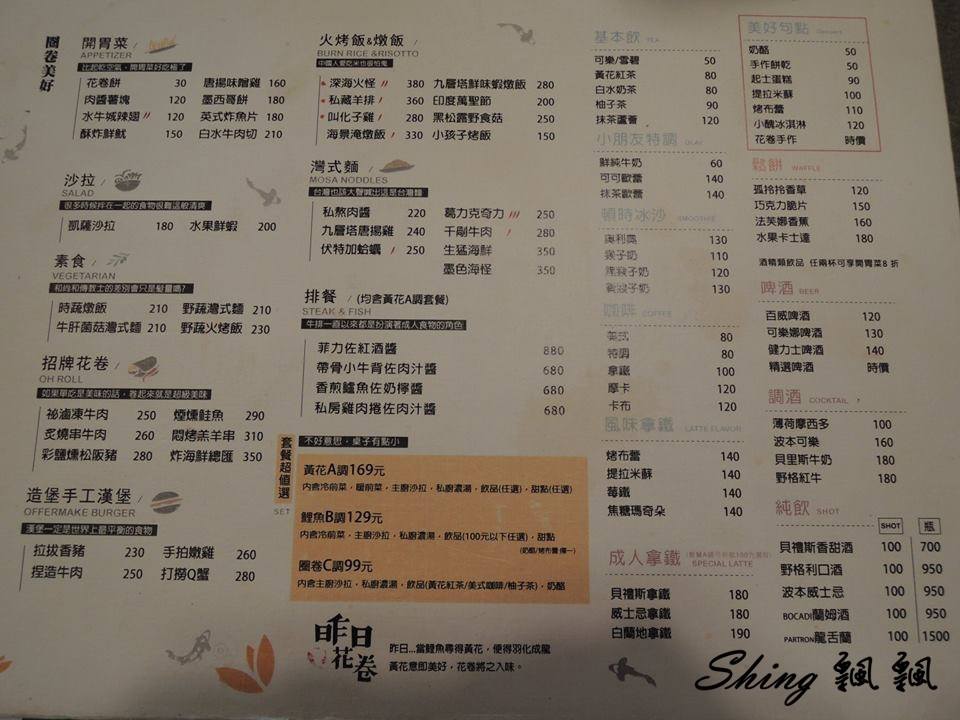 圈卷美好
開胃菜
APPETIZER
比起乾空氣，開胃菜好吃極了
花卷餅 30 唐揚味噌雞 160
肉醬薯塊 120 墨西哥餅 180
水牛城辣翅 120 英式炸魚片 180
酥炸鮮魷 150 白水牛肉切 210
沙拉
SALAD
很多時候拌在一起的食物很難這般清爽
凱薩沙拉 180 水果鮮蝦 200
素食
VEGETARIAN
和尚和傳教士的差別會只是髮量嗎?
時蔬燉飯 210 野蔬灣式麵 210
牛肝菌菇灣式麵 210 野蔬火烤飯 230
招牌花卷
OH ROLL
如果單吃是美味的話，卷起來就是超級美味
祕滷凍牛肉 250 煙燻鮭魚 290
炙燒串牛肉 260 悶烤羔羊串 310
彩鹽燻松阪豬 280 炸海鮮總匯 350
造堡手工漢堡
OFFERMAKE BURGER
漢堡一定是世界上最平衡的食物
拉拔香豬 230 手拍嫩雞 260
捏造牛肉 250 打撈Q蟹 280
火烤飯&燉飯
BURN RICE &RISOTTO
中國人愛吃米也很怕鬼
深海火怪 380 九層塔鮮味蝦燉飯 280
私藏羊排 360 印度萬聖節 200
叫化子雞 280 黑松露野食菇 250
海景淹燉飯 330 小孩子烤飯 150
灣式麵
MOSA NODDLES
台灣也該大聲喊出這是台灣麵
私熬肉醬 220 葛力克奇力 250
九層塔唐揚雞 240 干剮牛肉 280
伏特加蛤蠣 250 生猛海鮮 350
墨色海怪 350
排餐 / (均含黃花A調套餐)
STEAK & FISH
牛排一直以來都是扮演著成人食物的角色
菲力佐紅酒醬 880
帶骨小牛背佐肉汁醬 680
香煎鱸魚佐奶檸醬 680
私房雞肉捲佐肉汁醬 680
不好意思，桌子有點小
套餐超值選
SET
黃花A調169元
內含冷前菜，暖前菜，主廚沙拉，私廚濃湯，飲品(任選)，甜點(任選)
鯉魚B調129元
內含冷前菜，主廚沙拉，私廚濃湯，飲品(100元以下任選)，甜點
(奶酪/烤布蕾 擇一)
圈卷C調99元
內含主廚沙拉，私廚濃湯，飲品(黃花紅茶/美式咖啡/柚子茶)，奶酪
昨日花卷
昨日...當鯉魚尋得黃花，便得羽化成龍
黃花意即美好，花卷將之入味。
基本飲 TEA
可樂/雪碧 50
黃花紅茶 80
白水奶茶 80
柚子茶 90
抹茶蘆薈 120
小朋友特調
鮮純牛奶 60
可可歐蕾 140
抹茶歐蕾 140
頓時冰沙 SMOOTHIE
奧利露 130
猴子奶 110
120
130
咖啡 COFFEE
美式 80
特調 80
拿鐵 100
摩卡 120
卡布 120
風味拿鐵 LATTE FLAVOR
烤布蕾 140
提拉米蘇 140
莓鐵 140
焦糖瑪奇朵 140
成人拿鐵
SPECIAL LATTE
貝禮斯拿鐵 180
威士忌拿鐵 180
白蘭地拿鐵 190
美好句點 Dessert
奶酪 50
手作餅乾 50
起士蛋糕 90
提拉米蘇 100
烤布蕾 110
小醜冰淇淋 120
花卷手作 時價
鬆餅 WAFFLE
孤拎拎香草 120
巧克力脆片 150
法芙娜香蕉 160
水果卡士達 180
酒精類飲品 任兩杯可享開胃菜8 折
啤酒 BEER
百威啤酒 120
可樂娜啤酒 130
健力士啤酒 140
精選啤酒 時價
調酒 COCKTAIL
薄荷摩西多 100
波本可樂 160
貝里斯牛奶 180
野格紅牛 180
純飲 SHOT
SHOT 瓶
貝禮斯香甜酒 100 700
野格利口酒 100 950
波本威士忌 100 950
BOCADI蘭姆酒 100 950
PARTRON龍舌蘭 100 1500
Shing 飄飄